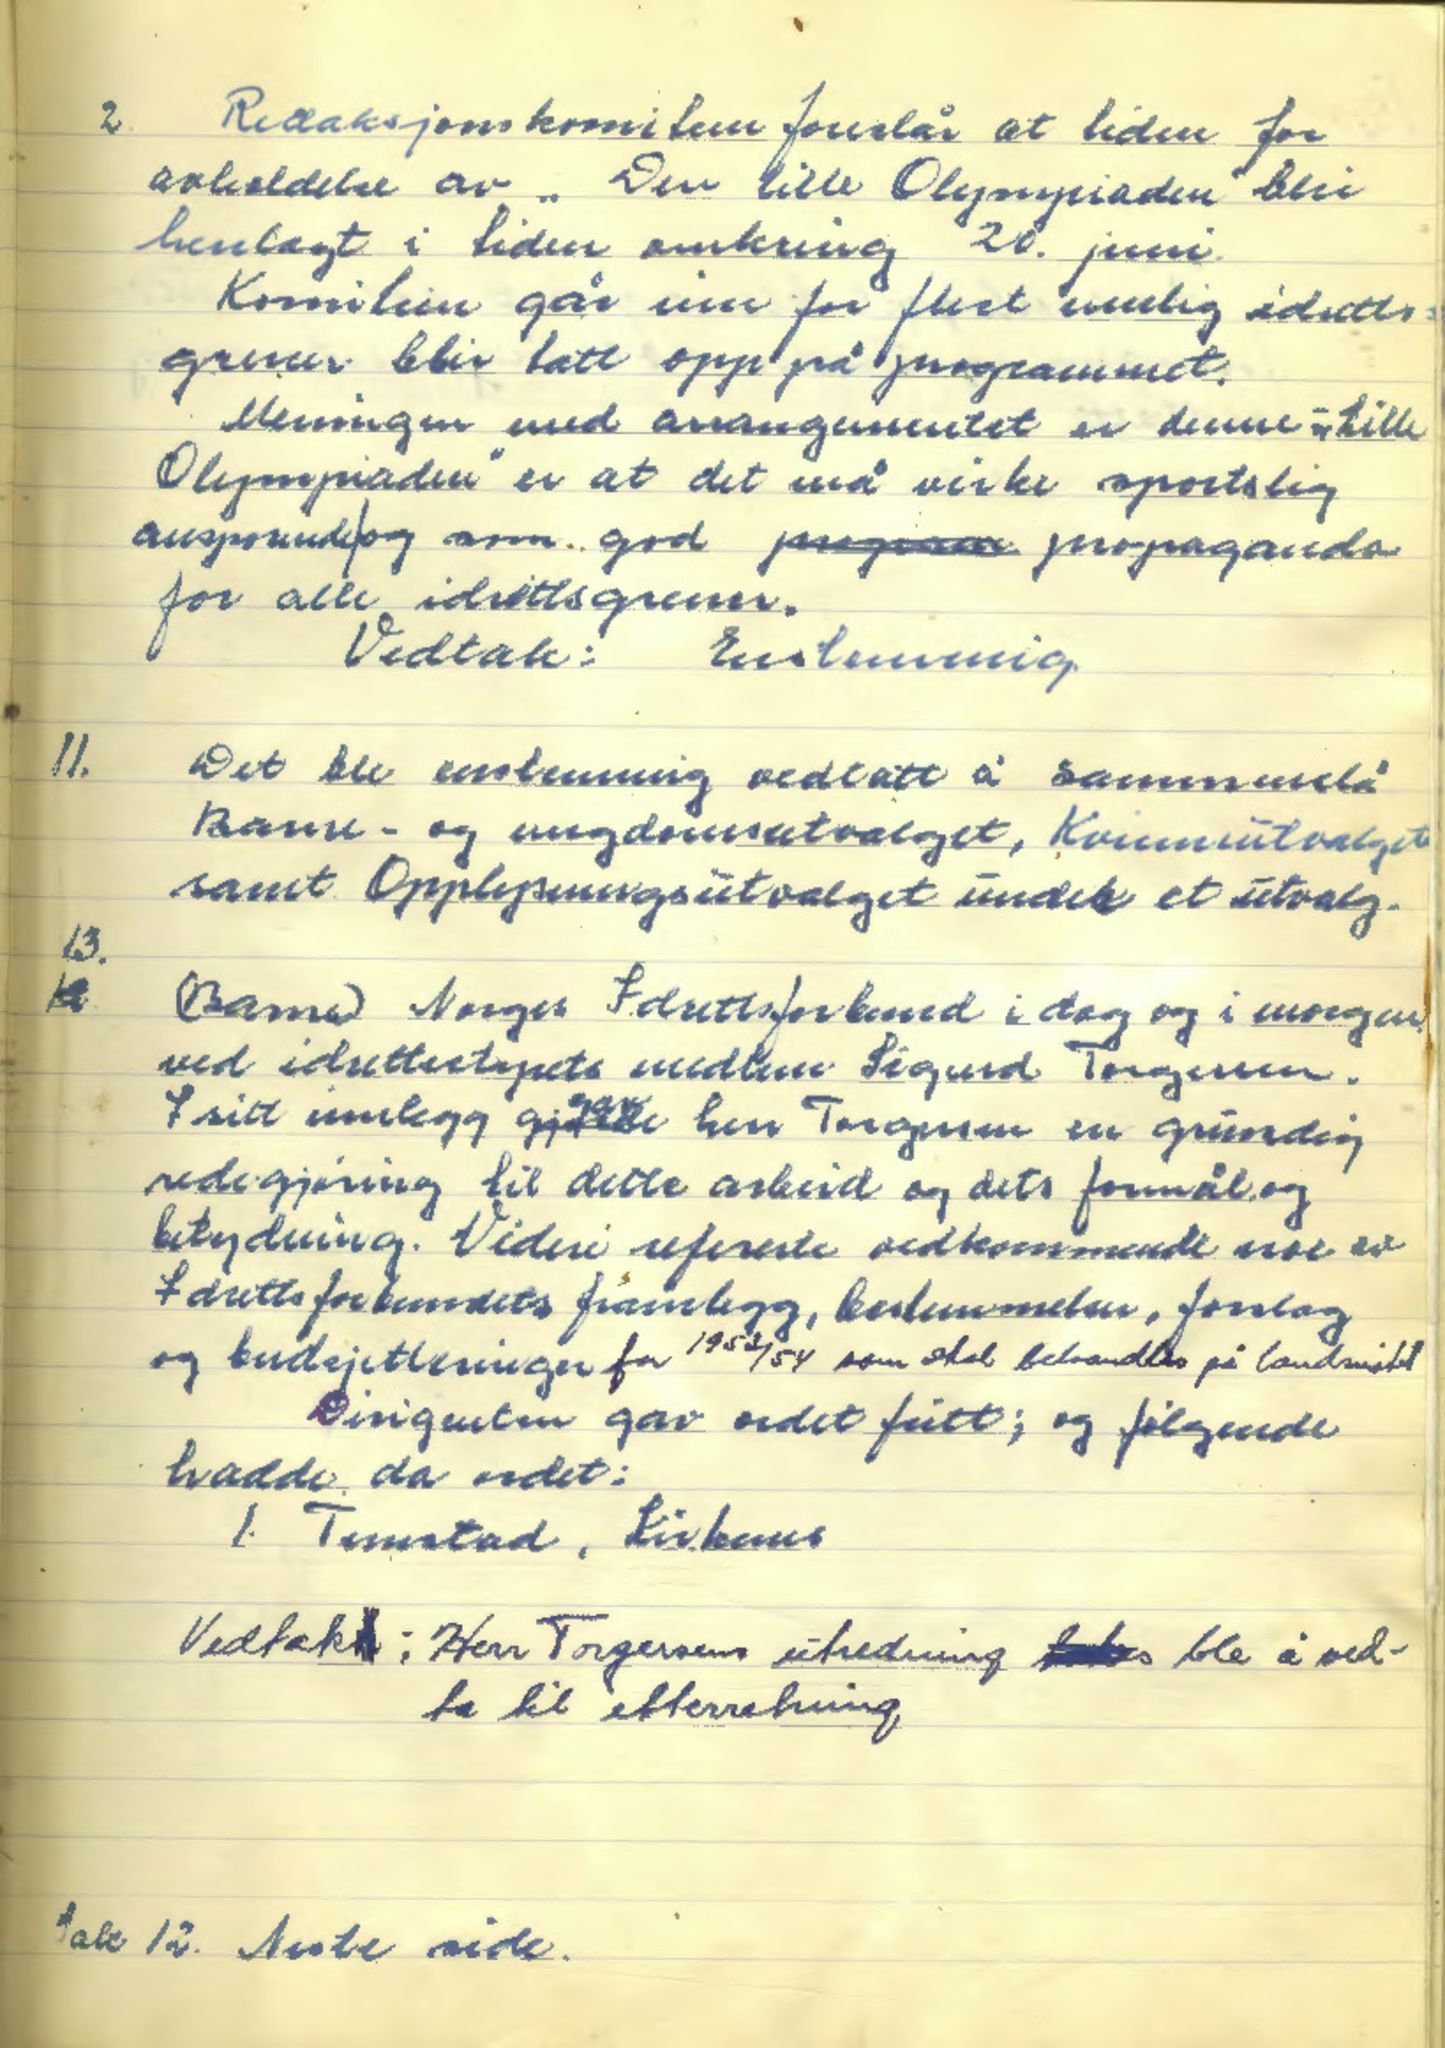 2. Redaksjonskomiteen foreslår at tiden for
avholdelse av „Den lille Olympiaden" blir
henlagt i tiden omkring 20. juni.
Komiteen går inn for flest mulig idretts-
grener blir tatt opp på programmet.
Meningen med arrangementet er denne „Lille
Olympiaden" er at det må virke sportslig
ansporende og som god propaganda
for alle idrettsgrener.
Vedtak: Enstemmig
11. Det ble enstemmig vedtatt å sammenslå
Barne- og ungdomsutvalget, Kvinneutvalget
samt Opplysningsutvalget under et utvalg.
13.
(Barne) Norges Idrettsforbund i dag og i morgen
ved idrettsstyrets medlem Sigurd Torgersen.
I sitt innlegg gav herr Torgersen en grundig
redegjøring til dette arbeid og dets formål og
betydning. Videre refererte vedkommende noe av
Idrettsforbundets framlegg, bestemmelser, forslag
og budsjetteringer for 1953/54 som skal behandles på landsmøtet
Dirigenten gav ordet fritt; og følgende
hadde da ordet:
1. Temstad, Kirkenes
Vedtak: Herr Torgersens utredning ble å ved-
ta til etterretning
Sak 12. Neste side.